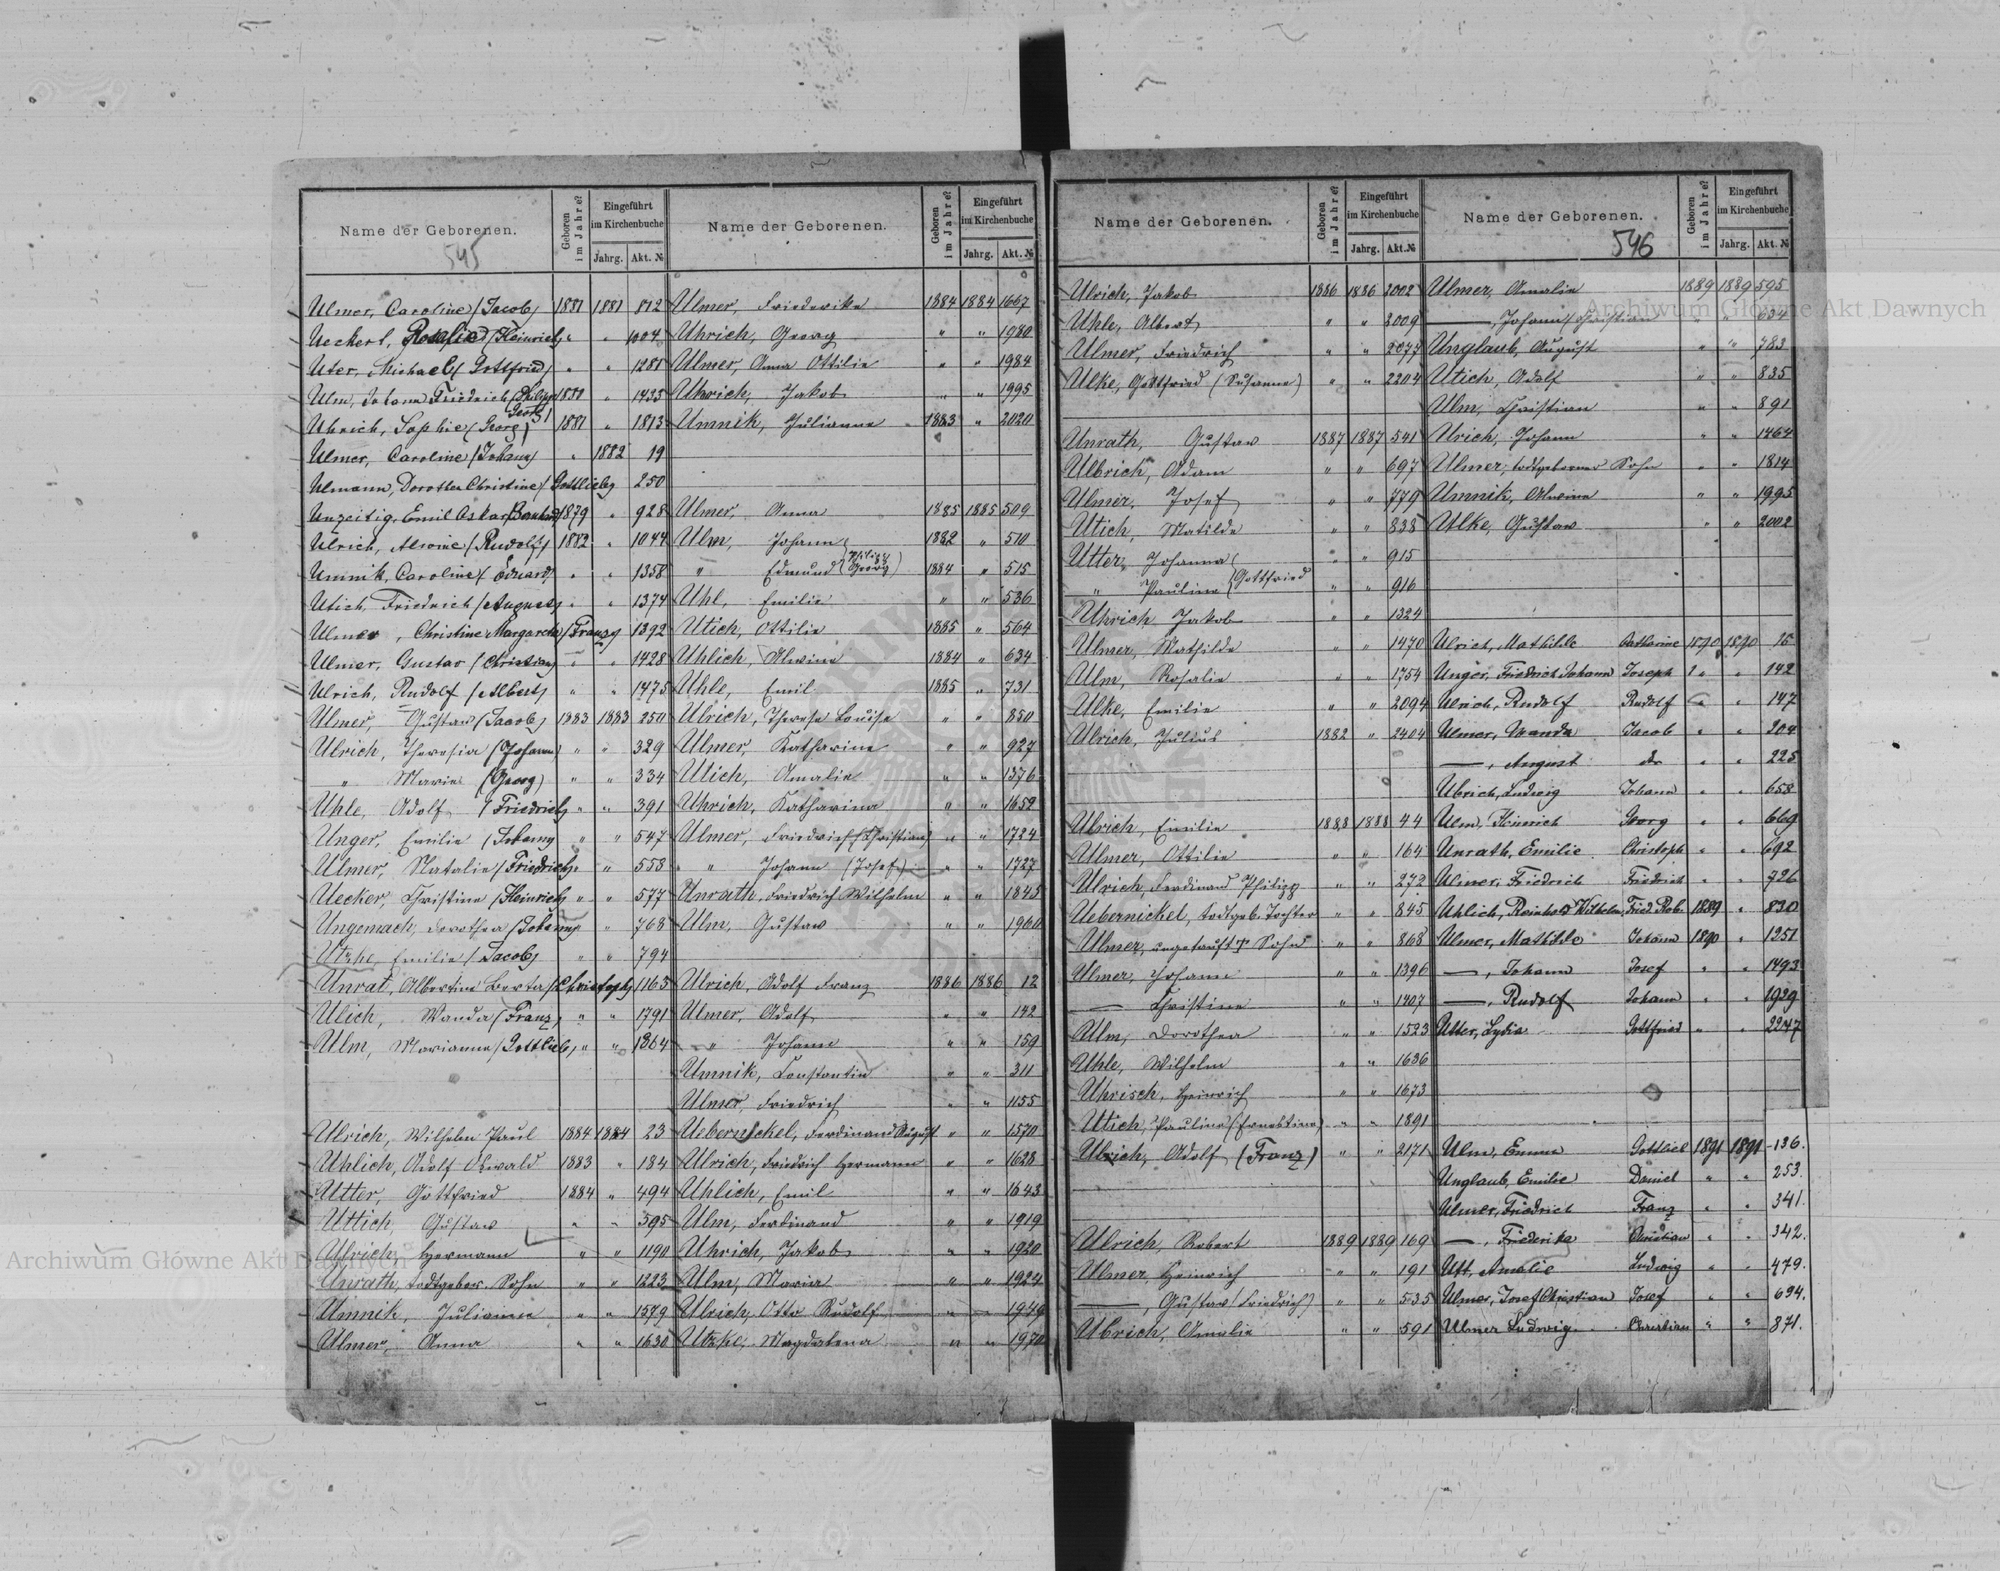 Name der Geborenen.
545
Geboren im Jahre?
Eingeführt im Kirchenbuche
Jahrg. Akt. №
Ulmer, Caroline (Jacob) 1881 1881 812
Ueckert, Rosalie (Heinrich) " " 1004
Uter, Michael (Gottfried) " " 1281
Ulm, Johann Friedrich (Philipp Georg) 1880 " 1433
Uhrich, Sophie (Georg) 1881 " 1813
Ulmer, Caroline (Johann) " 1882 19
Ulmann, Dorothea Christine (Gottlieb) 250
Unzeitig, Emil Oskar (Bernhard) 1879 " 928
Ulrich, Alwine (Rudolf) 1882 " 1044
Umnik, Caroline (Eduard) " " 1358
Utich, Friedrich (August) " " 1374
Ulmer, Christine Margaretha (Franz) 1392
Ulmer, Gustav (Christian) " " 1428
Ulrich, Rudolf (Albert) " " 1475
Ulmer, Gustav (Jacob) 1883 1883 250
Ulrich, Theresia (Johann) " " 329
" Maria (Georg) " " 334
Uhle, Adolf (Friedrich) " " 391
Unger, Emilie (Johann) " " 547
Ulmer, Natalie (Friedrich) " " 553
Uecker, Christine (Heinrich) " " 577
Ungemach, Dorothea (Johann) " " 768
Utzke, Emilie (Jacob) " " 794
Unrat, Albertine Berta (Christoph) 1163
Ulich, Wanda (Franz) " " 1791
Ulm, Marianna (Gottlieb) " " 1864
Ulrich, Wilhelm Paul 1884 1884 23
Uhlich, Adolf Oswald 1883 " 184
Utter, Gottfried 1884 " 494
Uttich, Gustav " " 595
Ulrich, Hermann " " 1190
Unrath, todtgebor. Sohn " " 1223
Umnik, Julianna " " 1579
Ulmer, Anna " " 1630
Name der Geborenen.
Geboren im Jahre?
Eingeführt im Kirchenbuche
Jahrg. Akt. №
Ulmer, Friederike 1884 1884 1667
Uhrich, Georg " " 1980
Ulmer, Anna Ottilie " " 1984
Uhrich, Jakob " " 1995
Umnik, Julianne 1883 " 2020
Ulmer, Anna 1885 1885 509
Ulm, Johann 1882 " 510
" Edmund (Philipp Georg) 1884 " 515
Uhl, Emilie " " 536
Utich, Ottilie 1885 " 564
Uhlich, Alwine 1884 " 634
Uhle, Emil 1885 " 731
Ulrich, Therese Louise " " 850
Ulmer, Katharina " " 927
Utich, Amalie " " 1376
Uhrich, Katharina " " 1652
Ulmer, Friedrich (Christian) " " 1724
" Johann (Josef) " " 1727
Unrath, Friedrich Wilhelm " " 1845
Ulm, Gustav " " 1960
Ulrich, Adolf Franz 1886 1886 12
Ulmer, Adolf " " 142
" Johann " " 159
Umnik, Constantin " " 311
Ulmer, Friedrich " " 1155
Uebernickel, Ferdinand August " " 1570
Ulrich, Friedrich Hermann " " 1628
Uhlich, Emil " " 1643
Ulm, Ferdinand " " 1919
Uhrich, Jakob " " 1920
Ulm, Maria " " 1924
Ulrich, Otto Rudolf " " 1949
Utzke, Magdalena " " 1970
Name der Geborenen.
Geboren im Jahre?
Eingeführt im Kirchenbuche
Jahrg. Akt. №
Ulrich, Jakob 1886 1886 2002
Uhle, Albert " " 2009
Ulmer, Friedrich " " 2077
Ulke, Gottfried (Susanna) " " 2204
Unrath, Gustav 1887 1887 541
Ulbrich, Adam " " 697
Ulmer, Josef " " 779
Utich, Matilde " " 838
Utter, Johanna " " 915
" Paulina (Gottfried " " 916
Uhrich Jakob " " 1324
Ulmer, Mathilde " " 1470
Ulm, Rosalie " " 1754
Ulke, Emilie " " 2094
Ulrich, Julius 1882 " 2404
Ulrich, Emilie 1888 1888 44
Ulmer, Ottilie " " 164
Ulrich, Ferdinand Philipp " " 272
Uebernickel, todtgeb. Tochter " " 845
Ulmer, ungetauft † Sohn " " 868
Ulmer, Johann " " 1396
— Christine " " 1407
Ulm, Dorothea " " 1523
Uhle, Wilhelm " " 1636
Uhrisch, Heinrich " " 1673
Utich, Pauline (Ernestine) " " 1891
Ulrich, Adolf (Franz) " " 2171
Ulrich, Robert 1889 1889 169
Ulmer, Heinrich " " 191
—, Gustav (Friedrich) " " 535
Ulrich, Amalie " " 591
Name der Geborenen.
546
Geboren im Jahre?
Eingeführt im Kirchenbuche
Jahrg. Akt. №
Ulmer, Amalie 1889 1889 595
—, Johann (Christian " " 634
Unglaub, August " " 783
Utich, Adolf " " 835
Ulm, Christian " " 891
Urich, Johann " " 1464
Ulmer, todtgeborner Sohn " " 1814
Umnik, Alwine " " 1995
Ulke, Gustav " " 2002
Ulrich, Mathilde Katharine 1890 1890 15
Unger, Friedrich Johann Joseph " " 142
Ulrich, Rudolf Rudolf " " 147
Ulmer, Wanda Jacob " " 204
—, August do " " 225
Ubrich, Ludwig Johann " " 658
Ulm, Heinrich Georg " " 669
Unrath, Emilie Christoph " " 692
Ulmer, Friedrich Friedrich " " 726
Uhlich, Reinhold Wilhelm, Fried. Rob. 1889 " 830
Ulmer, Mathilde Johann 1890 " 1251
—, Johann Josef " " 1493
—, Rudolf Johann " " 1939
Utter, Lydia Gottfried " " 2247
Ulm, Emma Gottlieb 1891 1891 136.
Unglaub, Emilie Daniel " " 253.
Ulmer, Friedrich Franz " " 341.
—, Friederike Christian " " 342.
Utt, Amalie Ludwig " " 479.
Ulmer, Josef Christian Josef " " 694.
Ulmer Ludwig Christian " " 871.
Archiwum Główne Akt Dawnych
Archiwum Główne Akt Dawnych